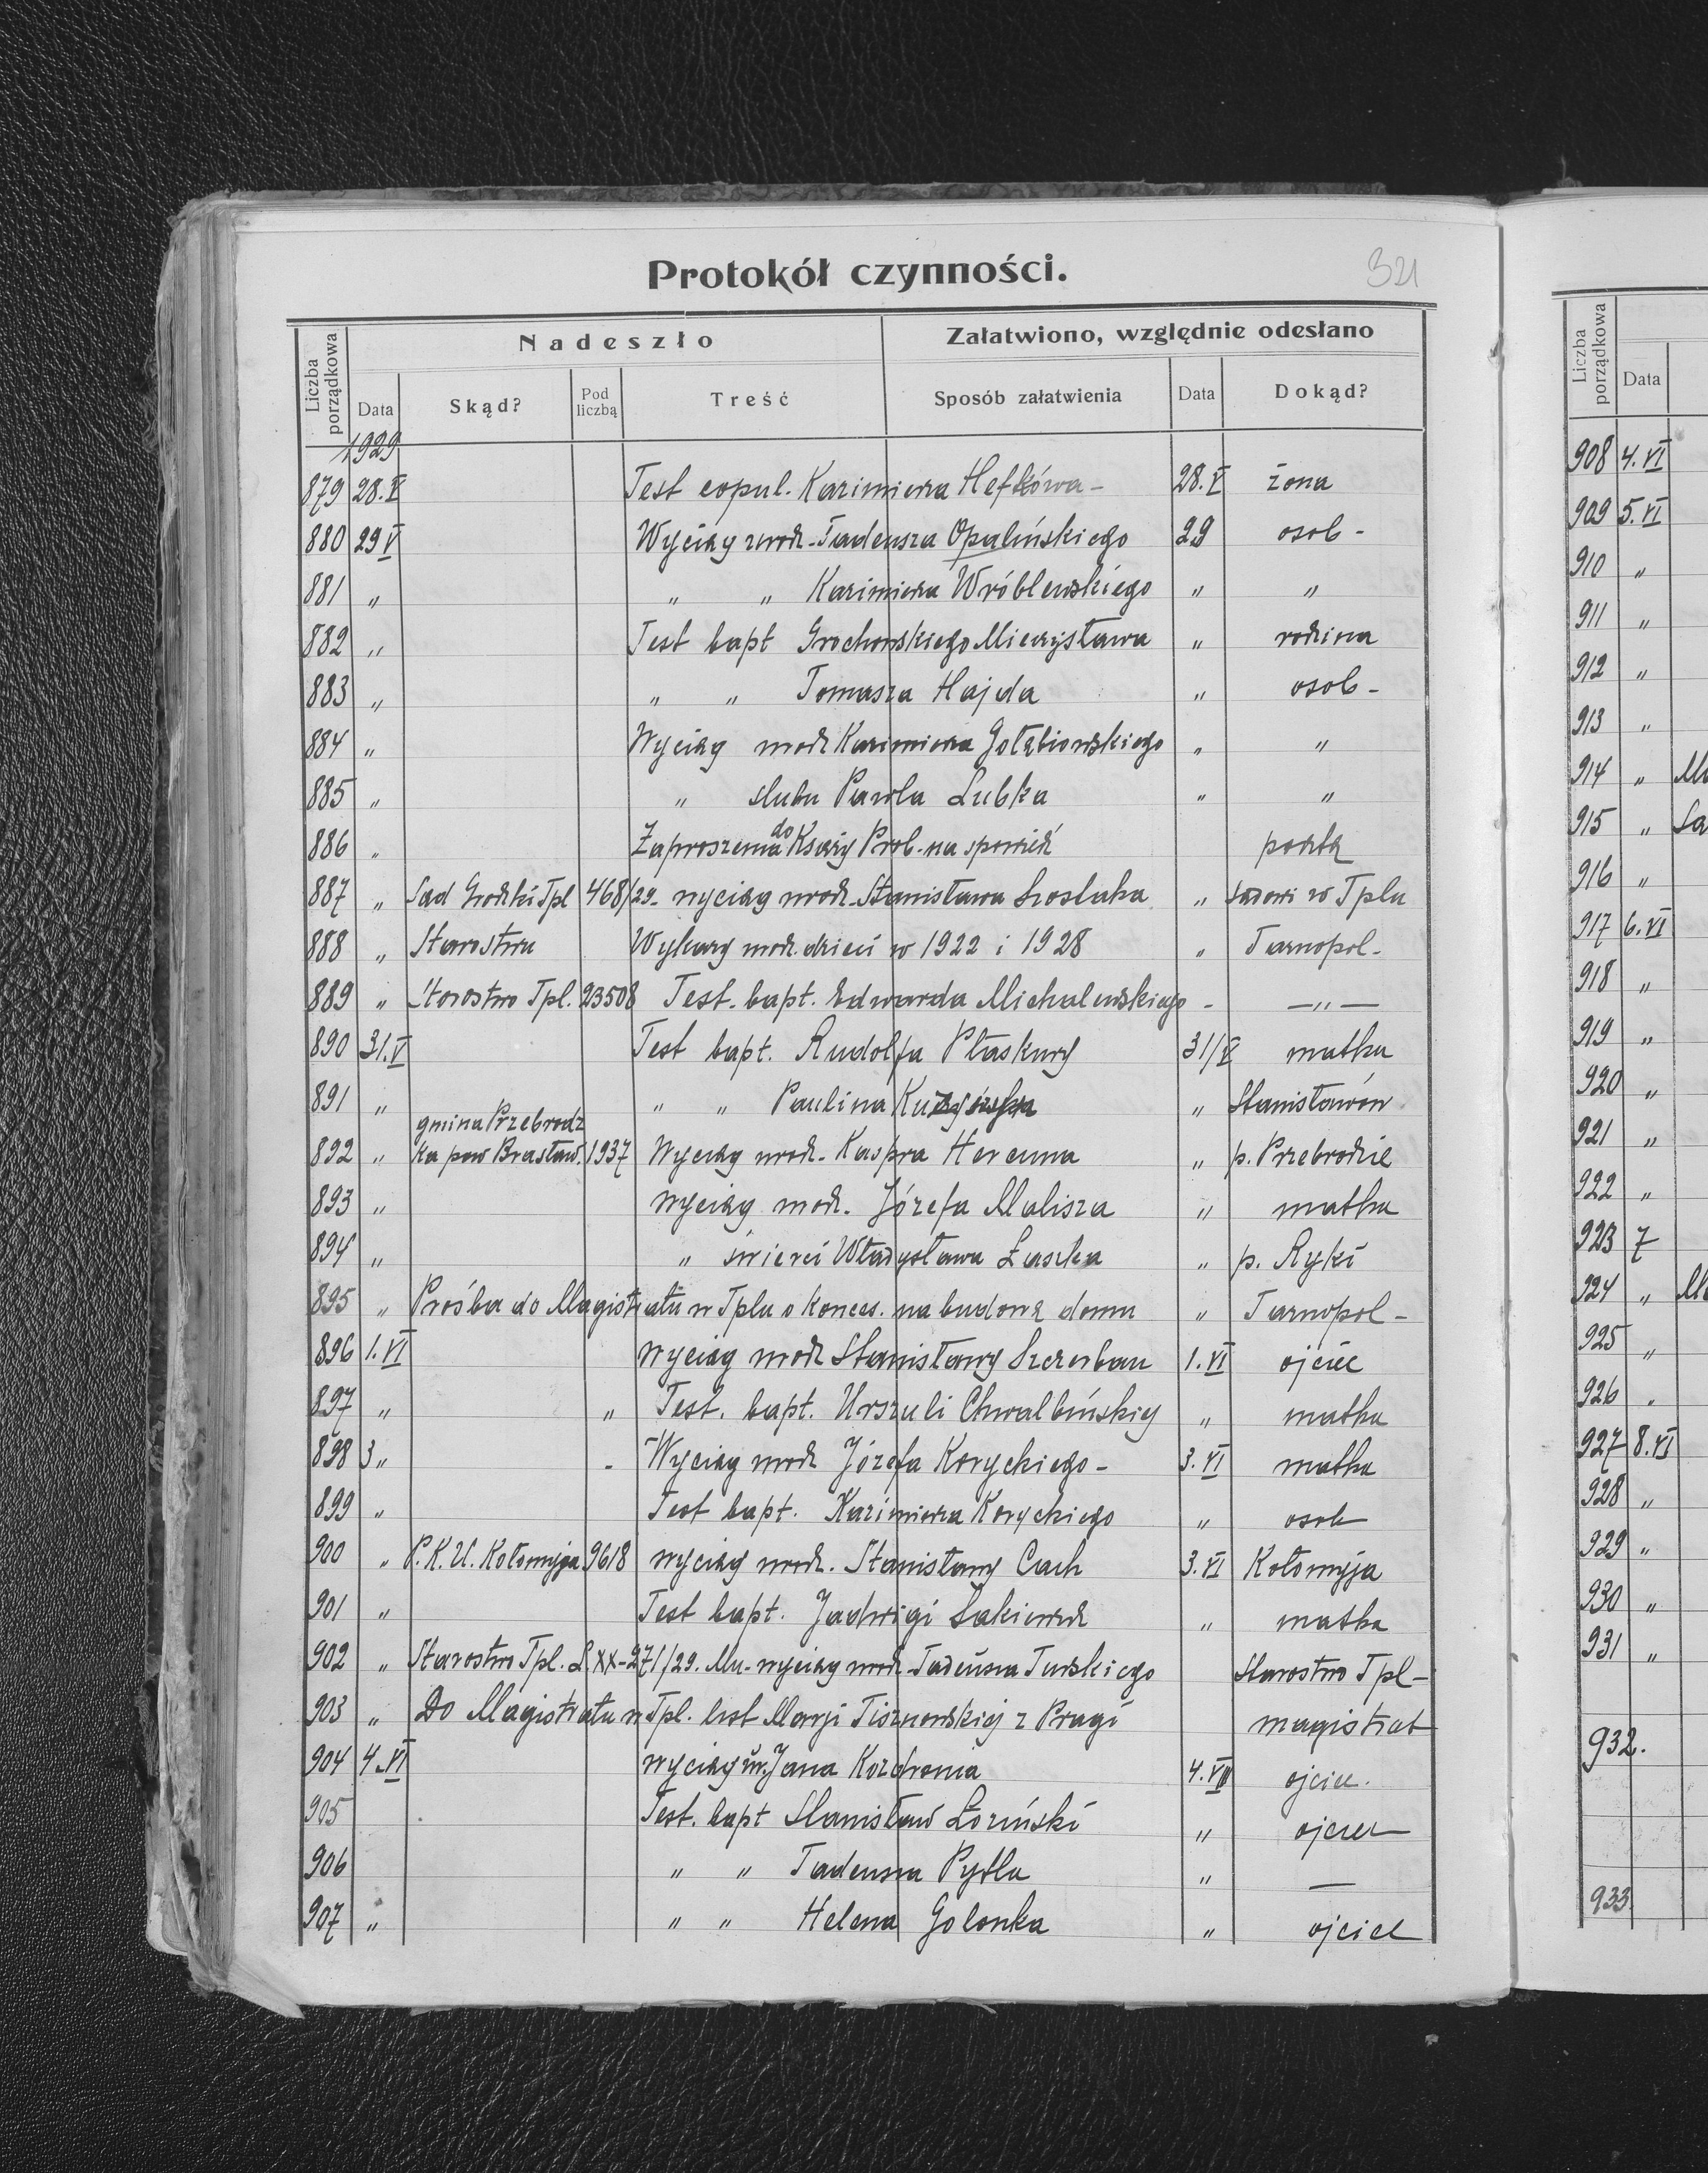 Protokół czynności.
321
Liczba porządkowa
Nadeszło
Załatwiono, względnie odesłano
Data
Skąd?
Pod liczbą
Treść
Sposób załatwienia
Data
Dokąd?
1929
879 28.V Test copul. Kazimierza Hefkówa - 28.V żona
880 29 V Wyciąg urodz. Tadeusza Opalińskiego 29 osob -
881 " " " Kazimierza Wróblewskiego " "
882 " Test bapt Grochowskiego Mieczysława " rodzina
883 " " " Tomasza Hajda " osob -
884 " Wyciąg urodz Kazimierza Gołąbiowskiego " "
885 " " ślubu Pawła Lubka " "
886 " Zaproszenia do Księży Prob. na spowiedź pocztą
887 " Sąd Grodzki Tpl 468/29 - wyciąg urodz. Stanisława " Sądowi w Tplu
888 " Starostwo Wykazy urodz. dzieci w 1922 i 1928 " Tarnopol -
889 " Starostwo Tpl. 23508 Test. bapt. Edwarda Michalewskiego - — " —
890 31.V Test bapt. Rudolfa Płaskury 31/V matka
891 " " " Paulina " Stanisławów
892 " gmina Przebrodz
ka pow Brasław. 1937 Wyciąg urodz. Kaspra " p. Przebrodzie
893 " wyciąg urodz. Józefa Malisza " matka
894 " " śmierci Władysława Łaszka " p. Ryki
895 " Prośba do Magistratu w Tplu o konces. na budowę domu " Tarnopol -
896 1.VI wyciąg urodz Stanisławy Szczerban 1.VI ojciec
897 " " Test. bapt. Urszuli Chwalbińskiej " matka
898 3 " - Wyciąg urodz Józefa Koryckiego - 3.VI matka
899 " Test bapt. Kazimierza Koryckiego " osob
900 " P.K.U. Kołomyja 9618 wyciąg urodz. Stanisławy Cach 3.VI Kołomyja
901 " Test bapt. Jadwigi " matka
902 " Starostwo Tpl. L XX-271/29. wyciąg urodz. Tadeusza Turskiego Starostwo Tpl -
903 " Do Magistratu w Tpl. list Marji Tisznowskiej z Pragi magistrat
904 4.VI wyciąg Jana Kozdronia 4.VI ojciec.
905 Test. bapt Stanisław Łoziński " ojciec
906 " " Tadeusza Pytla " —
907 " " " Helena Golonka " ojciec
Liczba porządkowa
Data
908 4.VI
909 5.VI
910 "
911 "
912 "
913 "
914 "
915 "
916 "
917 6.VI
918 "
919 "
920 "
921 "
922 "
923 7
924 "
925 "
926 "
927 8.VI
928 "
929 "
930 "
931 "
932.
933